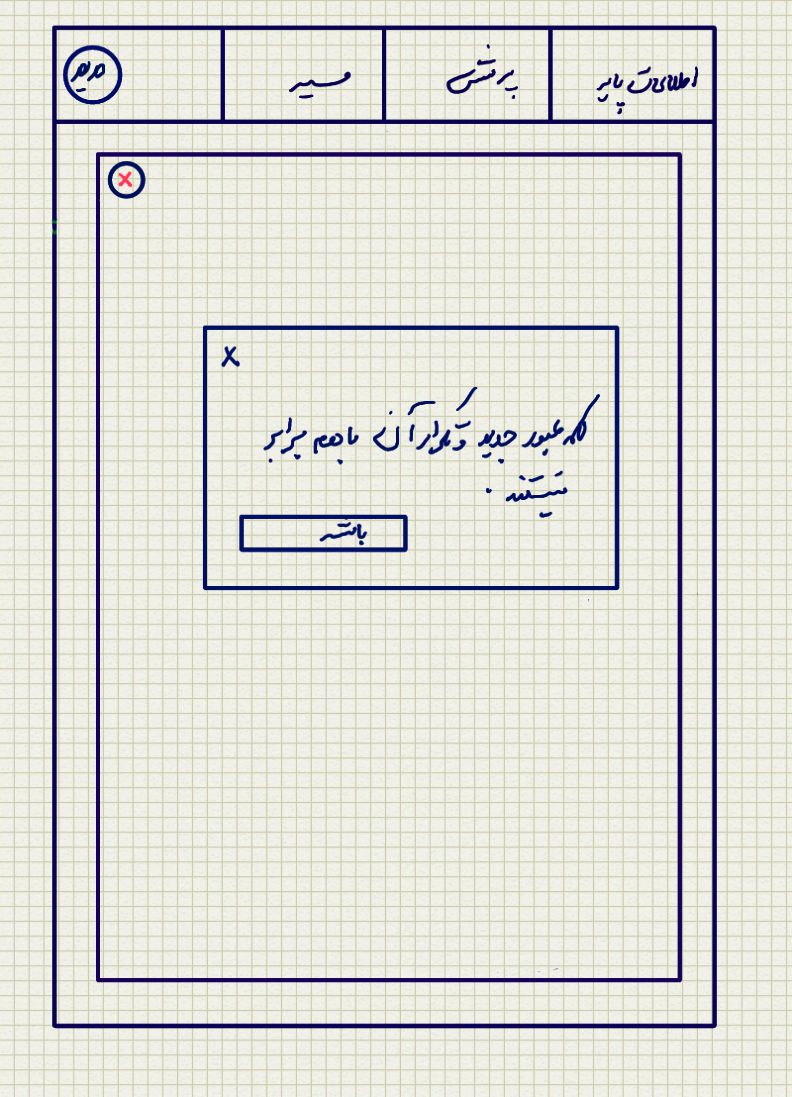 اطلاعات پایه
پرسش
مسیر
مدیر
X
X
کلمه عبور جدید و تکرار آن با هم برابر
نیستند .
باشه